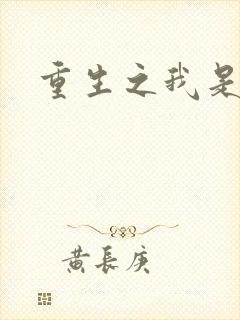 重生之我是
黄長庚